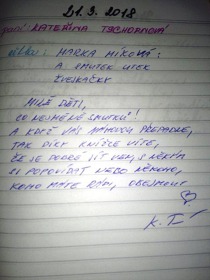 21. 3. 2018
paní KATEŘINA TSCHORNOVÁ
MARKA MÍKOVÁ:
A SMUTEK UTEK
ŽVEJKAČKY
MILÉ DĚTI,
CO NEJMÉNĚ SMUTKŮ!
A KDYŽ VÁS NÁHODOU PŘEPADNE,
TAK DÍKY KNÍŽCE VÍTE,
ŽE JE DOBRÉ JÍT VEN, S NĚKÝM
SI POPOVÍDAT NEBO NĚKOHO,
KOHO MÁTE RÁDI, OBEJMOUT